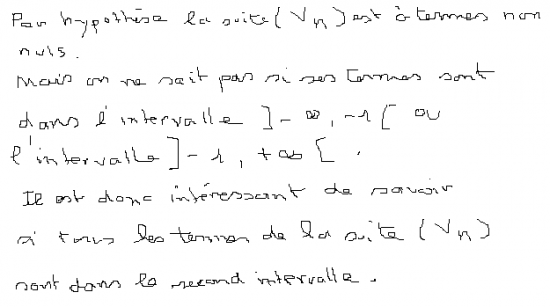 Par hypothèse la suite (Vn) est à termes non
nuls.
Mais on ne sait pas si ses termes sont
dans l'intervalle ]-∞, -1[ ou
l'intervalle ]-1, +∞[.
Il est donc intéressant de savoir
si tous les termes de la suite (Vn)
sont dans le second intervalle.